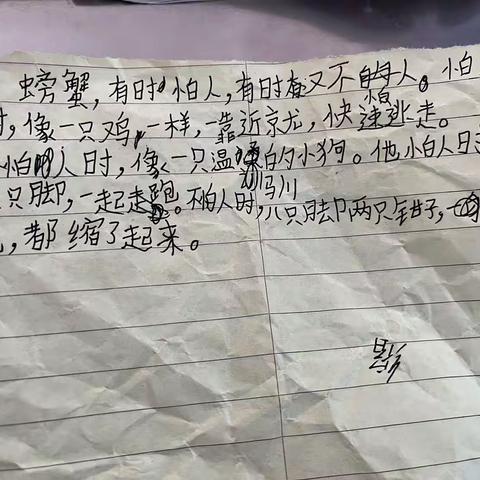 螃蟹，有时怕人，有时又不怕人。怕
时，像一只鸡，一样，一靠近就，快速逃走。
怕人时，像一只温驯的小狗。他怕人时
只脚，一起走跑。不怕人时，八只脚和两只钳子，一
，都缩了起来。